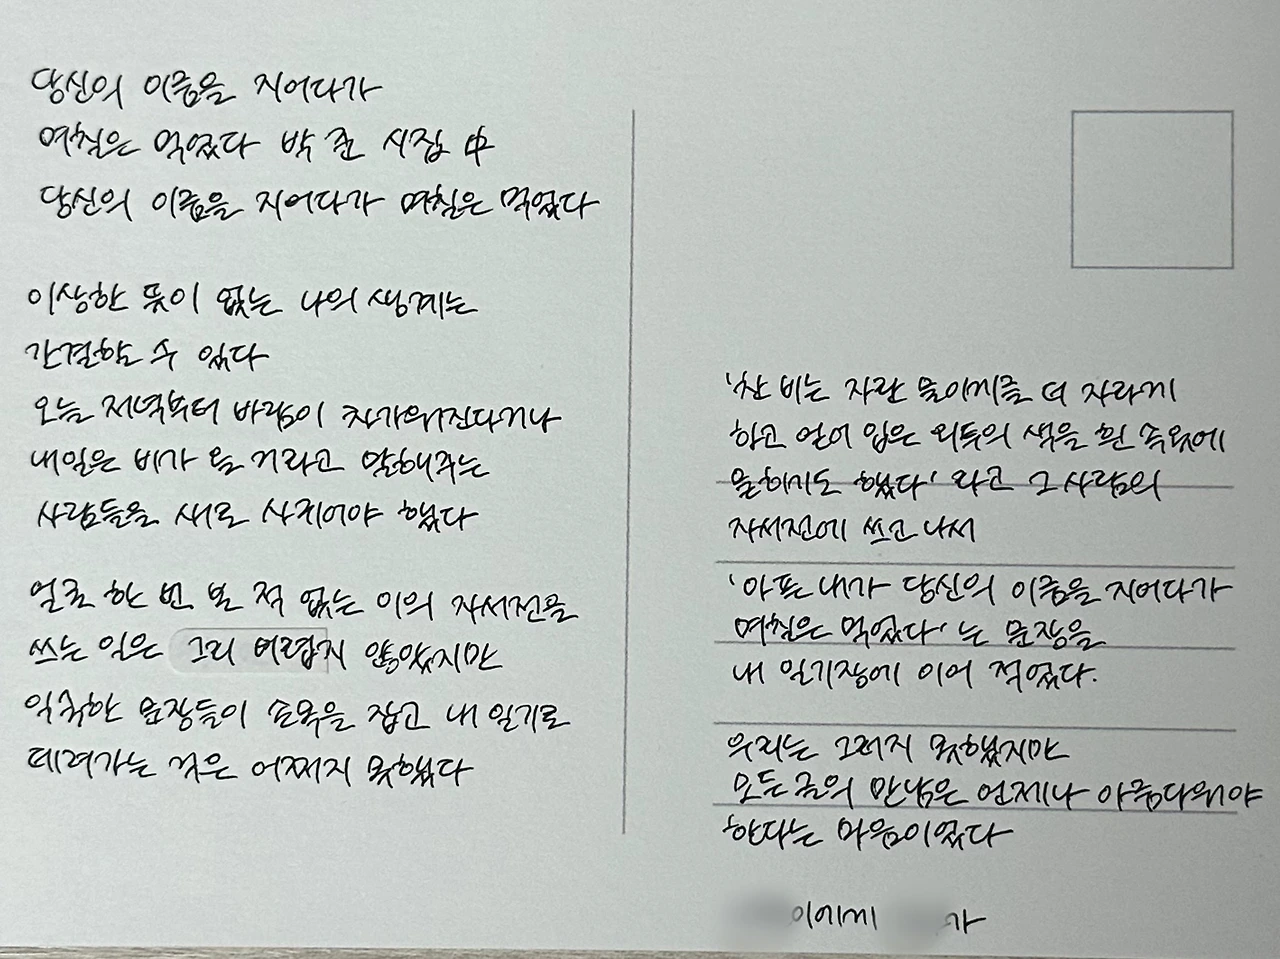 당신의 이름을 지어다가
며칠은 먹었다 박 준 시집 中
당신의 이름을 지어다가 며칠은 먹었다
이상한 뜻이 없는 나의 생계는
간결할 수 있다
오늘 저녁부터 바람이 차가워진다거나
내일은 비가 올 거라고 말해주는
사람들을 새로 사귀어야 했다
얼굴 한 번 본 적 없는 이의 자서전을
쓰는 일은 그리 어렵지 않았지만
익숙한 문장들이 손목을 잡고 내 일기로
데려가는 것은 어쩌지 못했다
'찬 비는 자란 물이끼를 더 자라게
하고 얻어 입은 외투의 색을 흰 속옷에
묻히기도 했다' 라고 그 사람의
자서전에 쓰고 나서
'아픈 내가 당신의 이름을 지어다가
며칠은 먹었다' 는 문장을
내 일기장에 이어 적었다.
우리는 그러지 못했지만
모든 글의 만남은 언제나 아름다워야
한다는 마음이었다
이에게 가